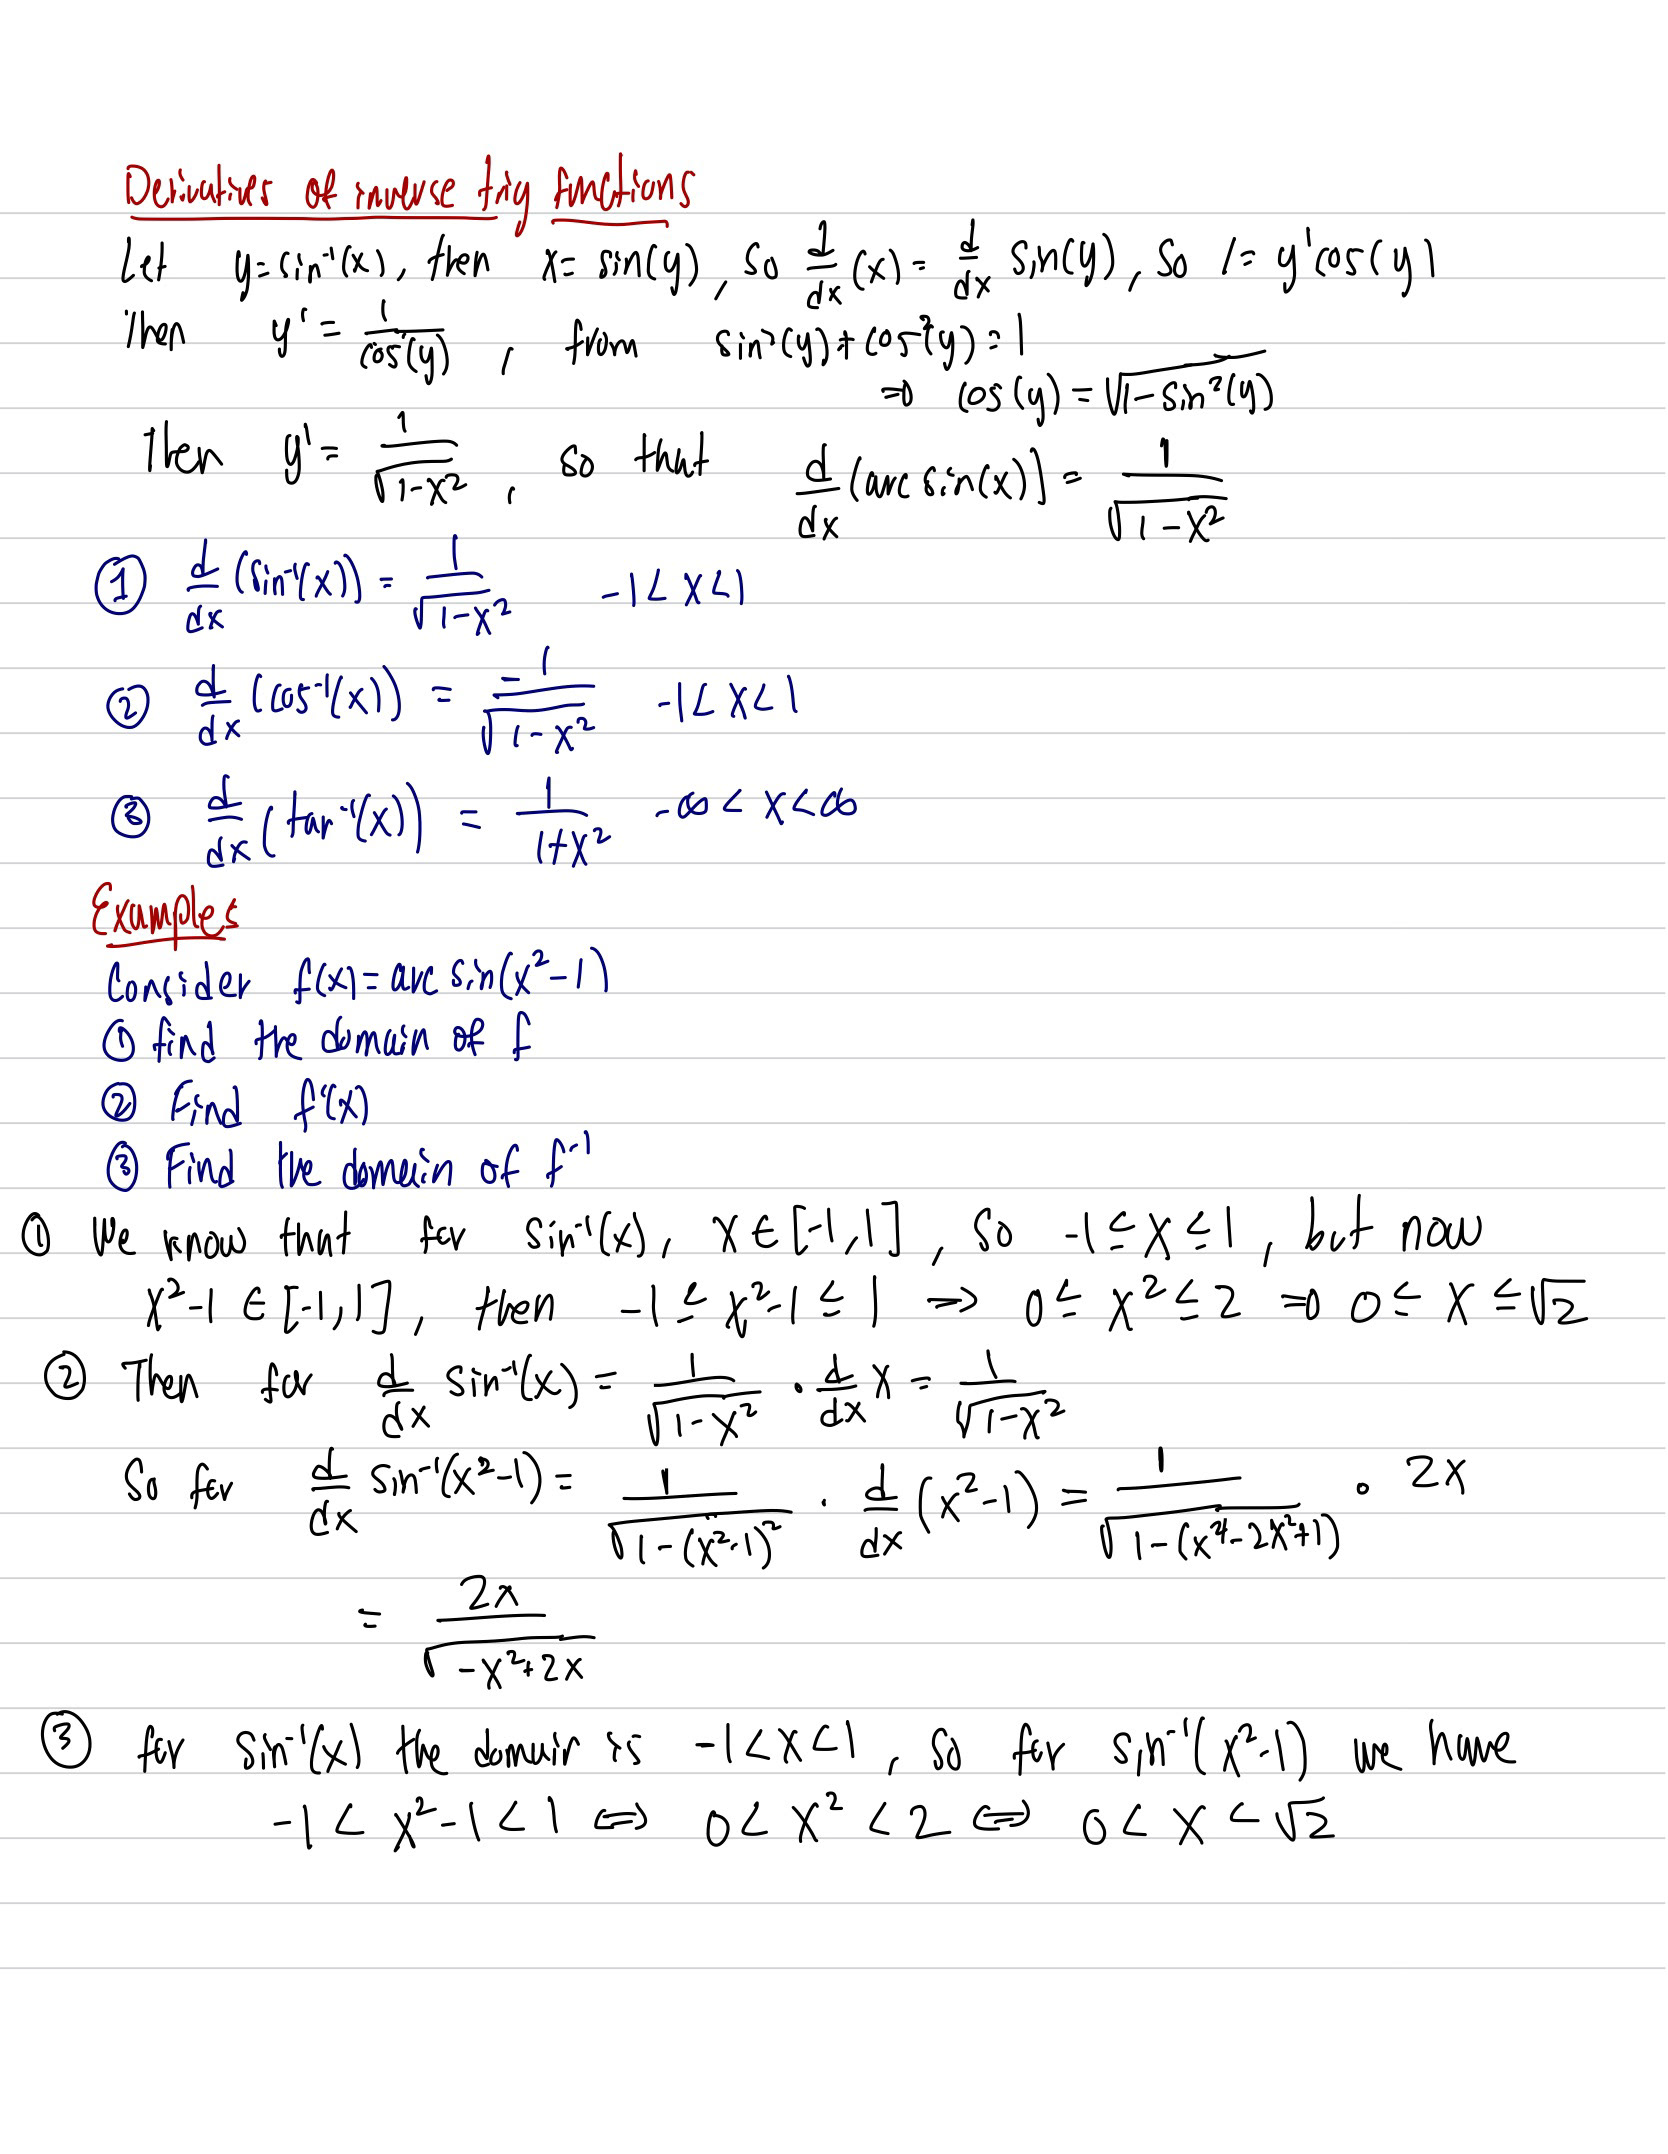 Derivatives of inverse trig functions
Let y=sin⁻¹(x), then x= sin(y), so d/dx (x) = d/dx sin(y), so 1= y'cos(y)
Then y' = 1/cos(y), from sin²(y)+cos²(y)=1
⇒ cos(y) = √(1-sin²(y))
Then y' = 1/√(1-x²), so that d/dx (arc sin(x)) = 1/√(1-x²)
① d/dx (sin⁻¹(x)) = 1/√(1-x²) -1<x<1
② d/dx (cos⁻¹(x)) = -1/√(1-x²) -1<x<1
③ d/dx (tan⁻¹(x)) = 1/(1+x²) -∞ < x < ∞
Examples
Consider f(x)=arc sin(x²-1)
① find the domain of f
② Find f'(x)
③ Find the domain of f⁻¹
① We know that for sin⁻¹(x), x ∈ [-1,1], so -1≤x≤1, but now
x²-1 ∈ [-1,1], then -1 ≤ x²-1 ≤ 1 ⇒ 0 ≤ x² ≤ 2 ⇒ 0 ≤ x ≤ √2
② Then for d/dx sin⁻¹(x) = 1/√(1-x²) · d/dx x = 1/√(1-x²)
So for d/dx sin⁻¹(x²-1) = 1/√(1-(x²-1)²) · d/dx (x²-1) = 1/√(1-(x⁴-2x²+1)) · 2x
= 2x/√(-x²+2x)
③ for sin⁻¹(x) the domain is -1<x<1, so for sin⁻¹(x²-1) we have
-1 < x²-1 < 1 ⇔ 0 < x² < 2 ⇔ 0 < x < √2